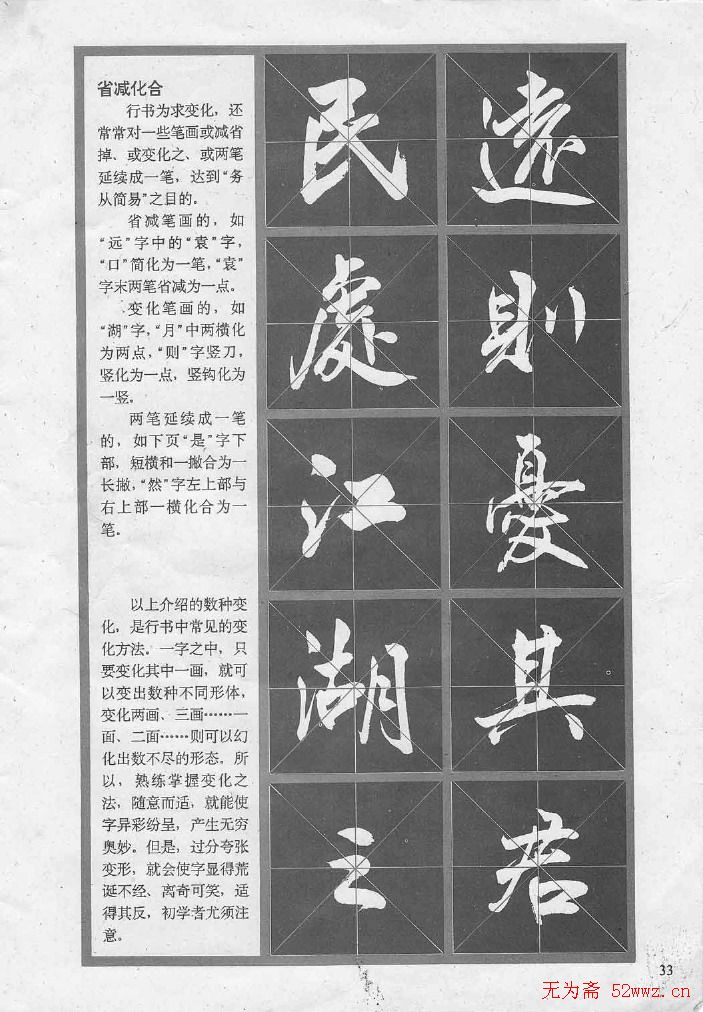 省减化合
行书为求变化，还
常常对一些笔画或减省
掉、或变化之、或两笔
延续成一笔，达到“务
从简易”之目的。
省减笔画的，如
“远”字中的“袁”字，
“口”简化为一笔，“袁”
字末两笔省减为一点。
变化笔画的，如
“湖”字，“月”中两横化
为两点，“则”字竖刀，
竖化为一点，竖钩化为
一竖。
两笔延续成一笔
的，如下页“是”字下
部，短横和一撇合为一
长撇，“然”字左上部与
右上部一横化合为一
笔。
以上介绍的数种变
化，是行书中常见的变
化方法。一字之中，只
要变化其中一画，就可
以变出数种不同形体，
变化两画、三画……一
面、二面……则可以幻
化出数不尽的形态，所
以，熟练掌握变化之
法，随意而适，就能使
字异彩纷呈，产生无穷
奥妙。但是，过分夸张
变形，就会使字显得荒
诞不经、离奇可笑，适
得其反，初学者尤须注
意。
民處江湖之
遠則憂其君
33
无为斋 52wwz.cn